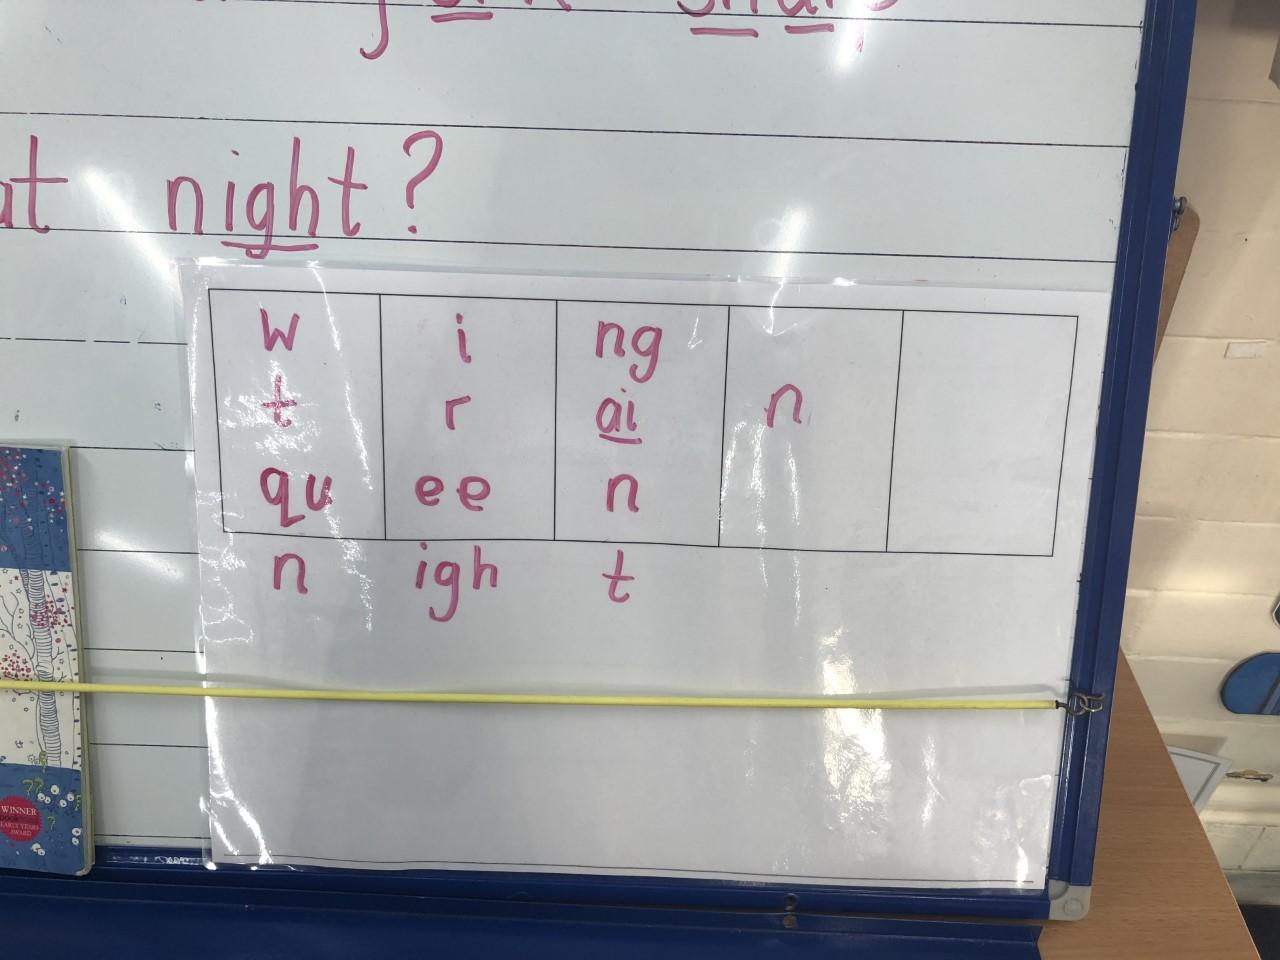 night?
w i ng
t r ai n
qu ee n
n igh t
WINNER
EARLY YEARS
AWARD